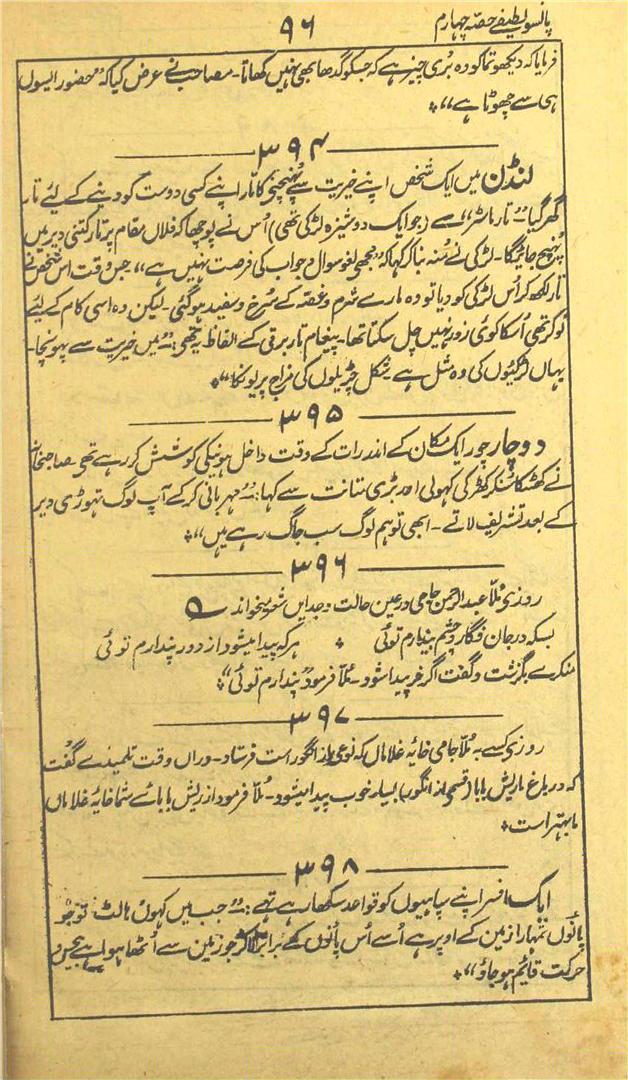 پانسو لطیفے حصہ چہارم
۹۶
فرمایا کہ دیکھو تماکو وہ بُری چیز ہے کہ جسکو گدھا بھی نہیں کھاتا۔ مصاحب نے عرض کیا کہ "حضور ایسوں
ہی سے چھوٹا ہے"
۳۹۴
لنڈن میں ایک شخص اپنے خیریت سے پہنچنے کا تار اپنے کسی دوست کو دینے کے لیٔے تار
گھر گیا۔ "تار ماسٹر" سے (جو ایک دوشیزہ لڑکی تھی) اُس نے پوچھا کہ فلاں مقام پر تار کتنی دیر میں
پہنچ جائیگا۔ لڑکی نے مُنہ بنا کر کہا کہ "مجھے لغو سوال و جواب کی فرصت نہیں ہے" جس وقت اس شخص نے
تار لکھ کر اُس لڑکی کو دیا تو وہ مارے شرم و غصہ کے سُرخ و سفید ہو گئی۔ لیکن وہ اسی کام کے لیٔے
نوکر تھی اُسکا کوئی زور نہیں چل سکتا تھا۔ پیغام تار برقی کے الفاظ یہ تھے: "میں خیریت سے پہونچا۔
یہاں لڑکیوں کی وہ مثل ہے شکل چڑیلوں کی مزاج پریوں کا"
۳۹۵
دو چار چور ایک مکان کے اندر رات کے وقت داخل ہونیکی کوشش کر رہے تھے صاحبخانہ
نے کھٹکا سُنکر کھڑکی کھولی اور بڑی متانت سے کہا: "مہربانی کر کے آپ لوگ تھوڑی دیر
کے بعد تشریف لاتے۔ ابھی تو ہم لوگ سب جاگ رہے ہیں"
۳۹۶
روزی مُلّا عبدالرحمن جامی در عین حالت وجد ایں شعر میخواند ؎
بسکہ در جان فگار و چشم بیدارم توئی ہر کہ پیدا میشود از دور پندارم توئی
منکرے بگزشت و گفت اگر خر پیدا شود۔ مُلّا فرمود "پندارم توئی"
۳۹۷
روزی کسے بہ مُلّا جامی خایۂ غلاماں کہ نوعی از انگور است فرستاد۔ دراں وقت تلمیذے گفت
کہ در باغ ما ریش بابا (قسمی از انگور) بسیار خوب پیدا میشود۔ مُلّا فرمود از ریش بابائے شما خایۂ غلاماں
ما بہتر است
۳۹۸
ایک افسر اپنے سپاہیوں کو قواعد سکھا رہے تھے: "جب میں کہوں ہالٹ تو جو
پاؤں تمہارا زمین کے اوپر ہے اُسے اُس پاؤں کے برابر لاکر جو زمین سے اُٹھا ہوا ہے بیحس و
حرکت قایٔم ہو جاؤ"